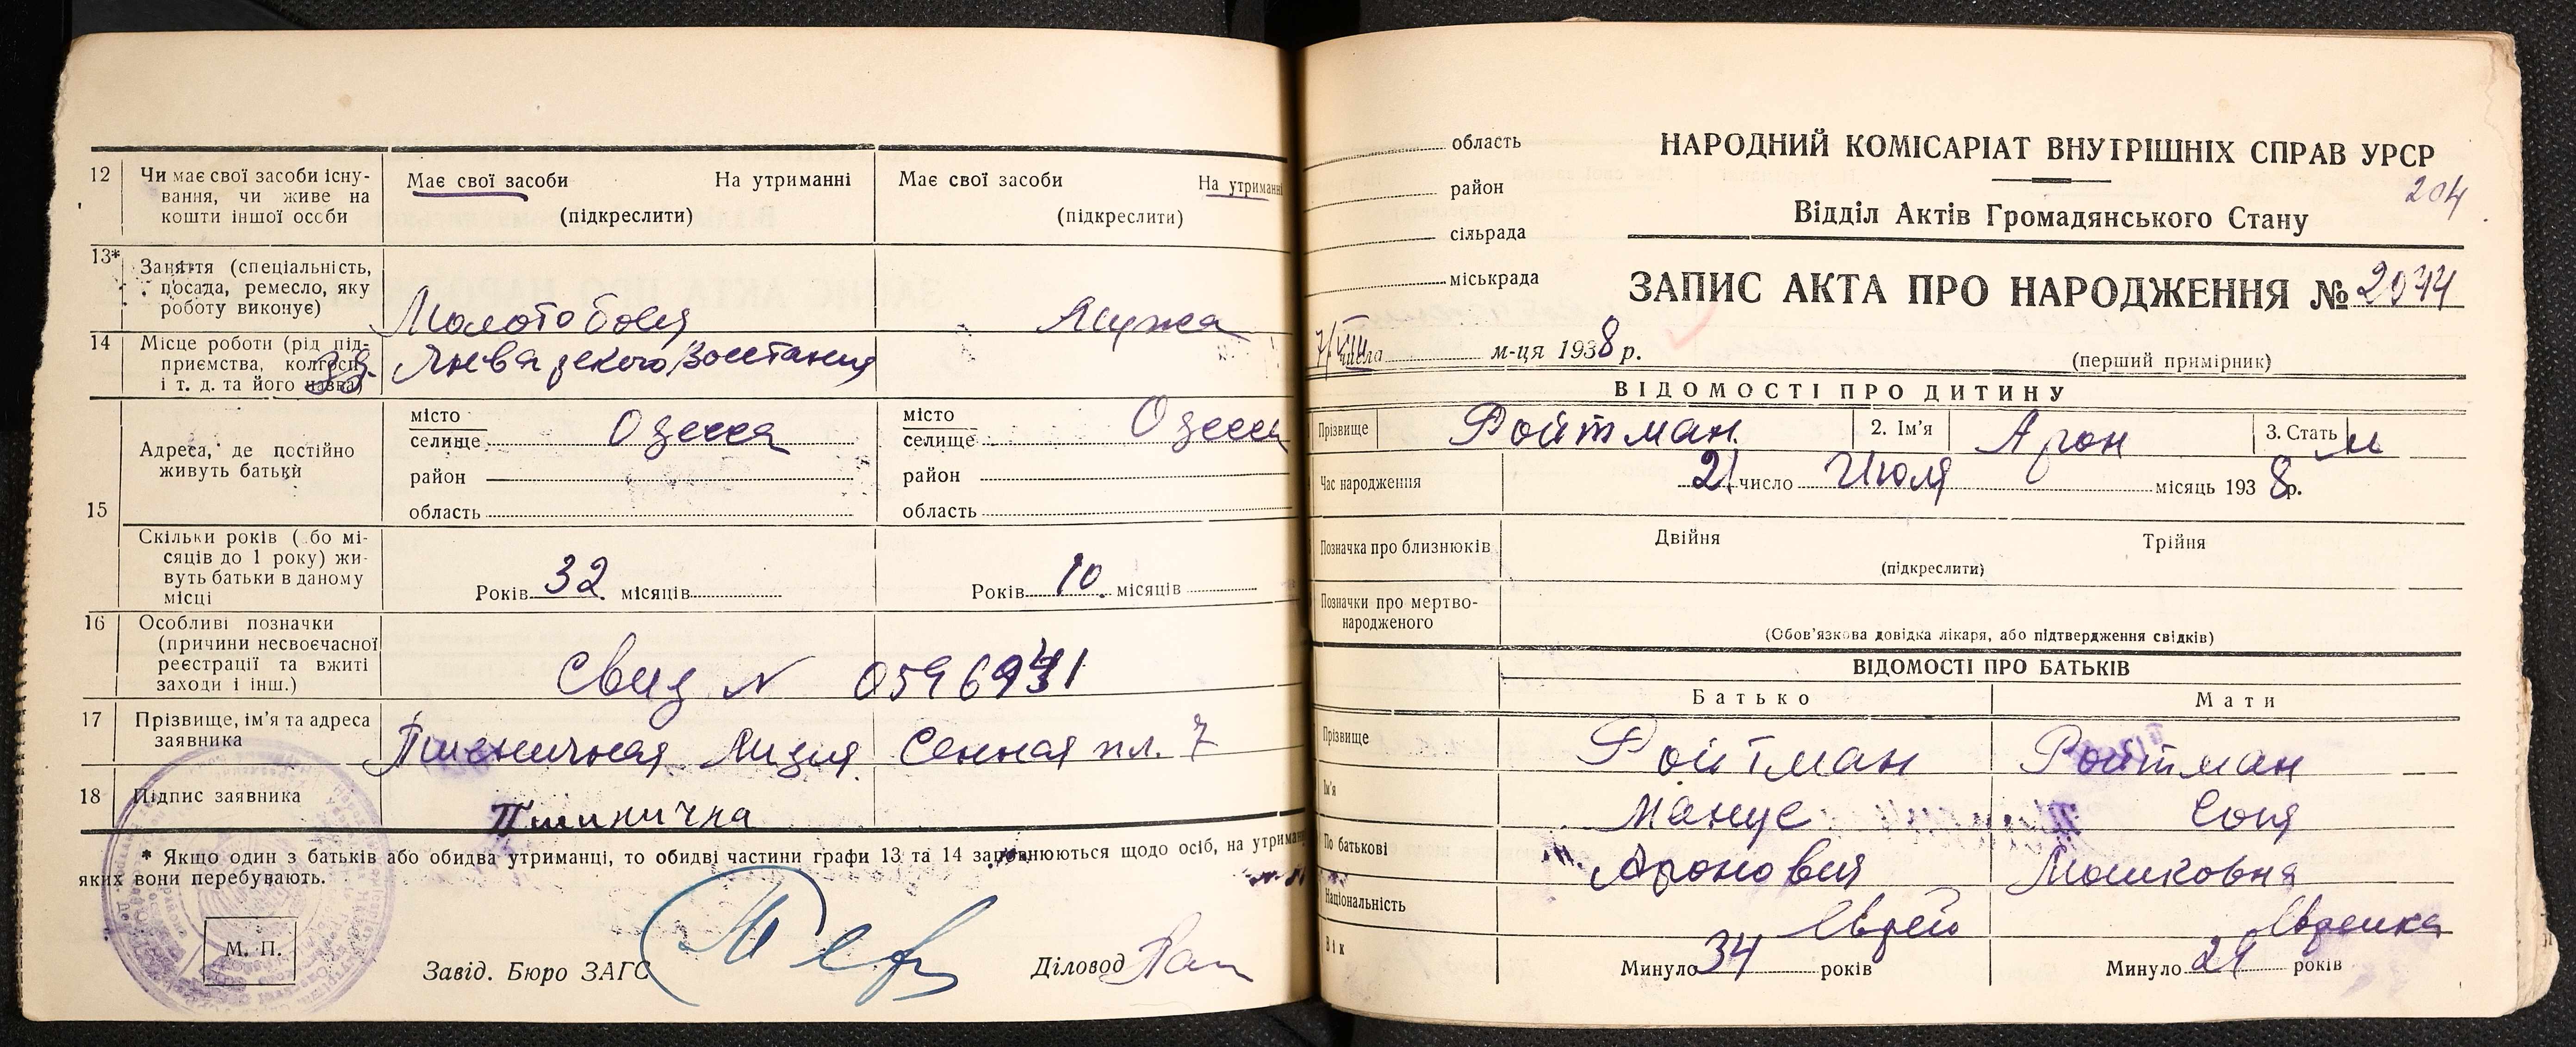 12
Чи має свої засоби існу-
вання, чи живе на
кошти іншої особи
Має свої засоби На утриманні
(підкреслити)
Має свої засоби На утриманні
(підкреслити)
13*
Заняття (спеціальність,
посада, ремесло, яку
роботу виконує)
Молотобоец
Мужа
14
Місце роботи (рід під-
приємства, колгосп
і т. д. та його назва)
Январского Восстания
15
Адреса, де постійно
живуть батьки
місто
селище Одесса
район
область
місто
селище Одесса
район
область
Скільки років (або мі-
сяців до 1 року) жи-
вуть батьки в даному
місці
Років 32 місяців
Років 10 місяців
16
Особливі позначки
(причини несвоєчасної
реєстрації та вжиті
заходи і інш.)
Свид N
17
Прізвище, ім'я та адреса
заявника
Пшеничная Лидия Сенная пл. 7
18
Підпис заявника
Пшинична
* Якщо один з батьків або обидва утриманці, то обидві частини графи 13 та 14 заповнюються щодо осіб, на утриманні
яких вони перебувають.
М. П.
Завід. Бюро ЗАГС
Діловод
область
район
сільрада
міськрада
НАРОДНИЙ КОМІСАРІАТ ВНУТРІШНІХ СПРАВ УРСР
204
Відділ Актів Громадянського Стану
ЗАПИС АКТА ПРО НАРОДЖЕННЯ № 2044
7/VIII числа м-ця 1938 р.
(перший примірник)
ВІДОМОСТІ ПРО ДИТИНУ
Прізвище Ройтман 2. Ім'я Арон 3. Стать м
Час народження 21 число Июля місяць 1938 р.
Позначка про близнюків Двійня Трійня
(підкреслити)
Позначки про мертво-
народженого
(Обов'язкова довідка лікаря, або підтвердження свідків)
ВІДОМОСТІ ПРО БАТЬКІВ
Батько Мати
Прізвище Ройтман Ройтман
Ім'я Манус Соня
По батькові Аронович Мошковна
Національність Еврей Еврейка
Вік Минуло 34 років Минуло 29 років